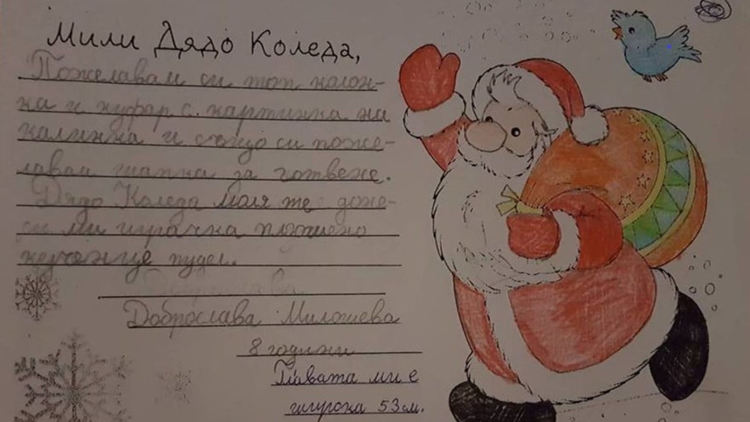 Мили Дядо Коледа,
Пожелавам си тон колон-
ка и куфар с картинка на
калинка и също си поже-
лавам шапка за готвене.
Дядо Коледа моля те доне-
си ми играчка плюшено
кученце пудел.
Доброслава Милошева
8 години
Главата ми е
широка 53 см.